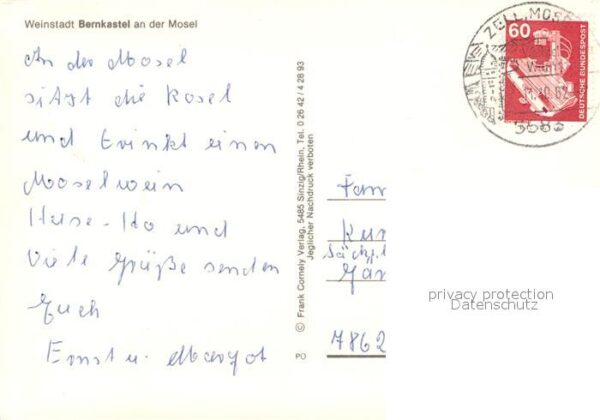 Weinstadt Bernkastel an der Mosel
An der Mosel
sitzt die Rosel
und trinkt einen
Moselwein
Huse-Ho und
Viele Grüße senden
Euch
Ernst u. Margot
© Frank Cornely Verlag, 5485 Sinzig/Rhein, Tel. 0 26 42 / 4 28 93
Jeglicher Nachdruck verboten
PO
ZELL, MOSEL
60
DEUTSCHE BUNDESPOST
5583
Fam
Kun
Gar
7862
privacy protection
Datenschutz